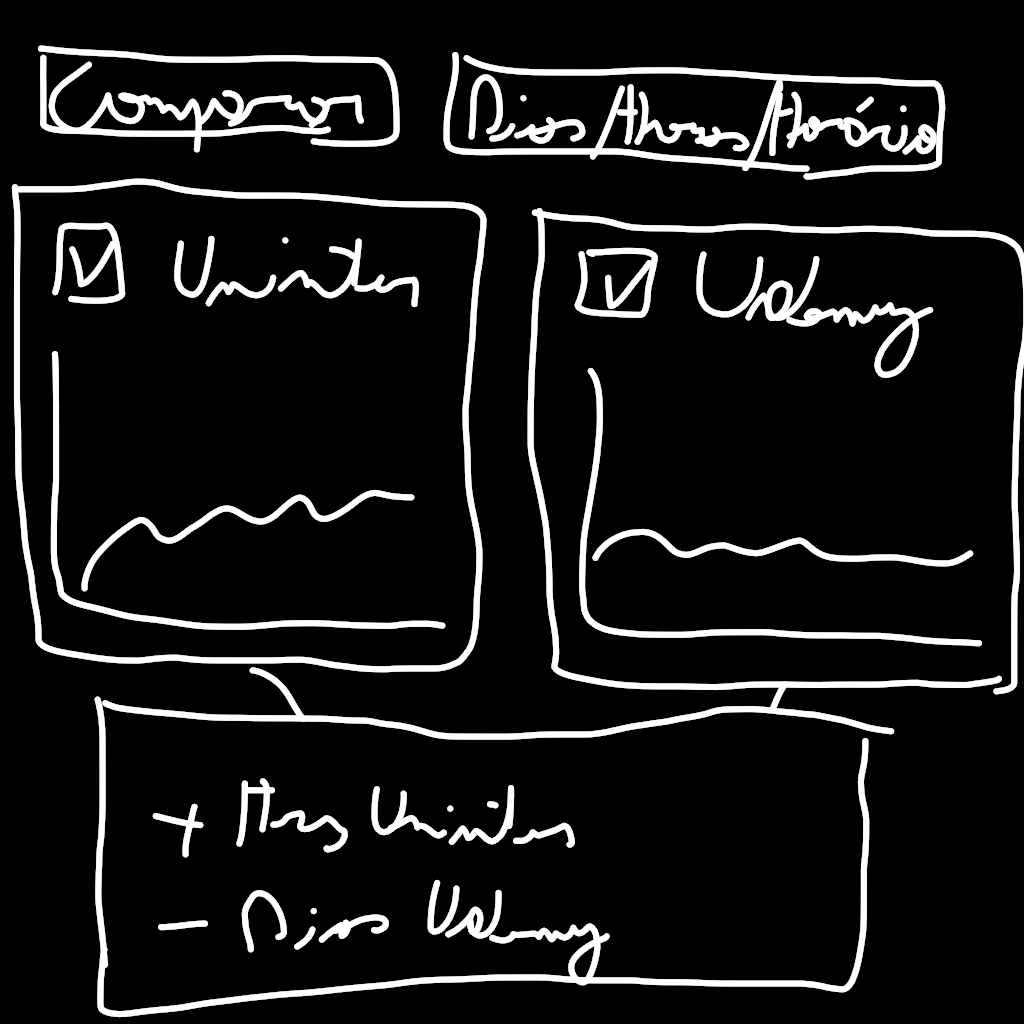 Comparar
Dias/Horas/Horário
Uninter
Udemy
+ Hrs Uninter
- Dias Udemy